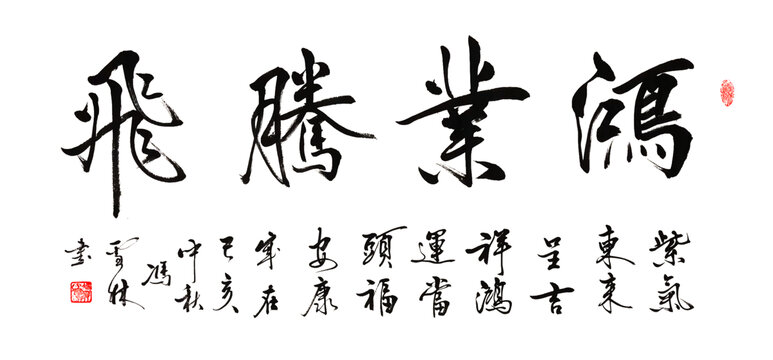 鴻業騰飛
紫氣
東來
呈吉
祥鴻
運當
頭福
安康
歲在
己亥
中秋
馮
雪林
書